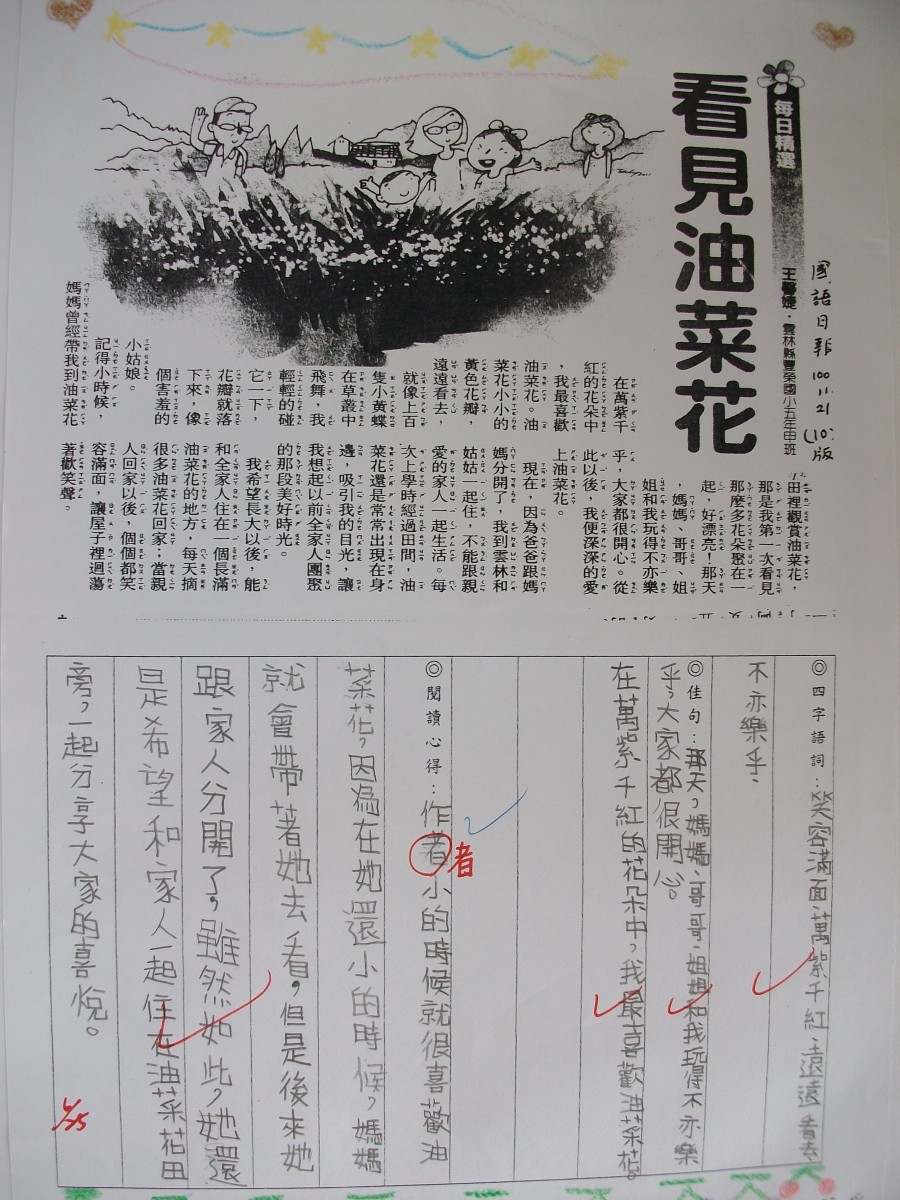 國語日報 100.11.21 (10)版
每日精選
王馨婕‧雲林縣豐榮國小五年甲班
看見油菜花
在萬紫千
紅的花朵中
，我最喜歡
油菜花。油
菜花小小的
黃色花瓣，
遠遠看去，
就像上百
隻小黃蝶
在草叢中
飛舞，我
輕輕的碰
它一下，
花瓣就落
下來，像
個害羞的
小姑娘。
記得小時候，
媽媽曾經帶我到油菜花
田裡觀賞油菜花，
那是我第一次看見
那麼多花朵聚在一
起，好漂亮！那天
，媽媽、哥哥、姐
姐和我玩得不亦樂
乎，大家都很開心。從
此以後，我便深深的愛
上油菜花。
現在，因為爸爸跟媽
媽分開了，我到雲林和
姑姑一起住，不能跟親
愛的家人一起生活。每
次上學時經過田間，油
菜花還是常常出現在身
邊，吸引我的目光，讓
我想起以前全家人團聚
的那段美好時光。
我希望長大以後，能
和全家人住在一個長滿
油菜花的地方，每天摘
很多油菜花回家；當親
人回家以後，個個都笑
容滿面，讓屋子裡迴蕩
著歡笑聲。
◎四字語詞：笑容滿面、萬紫千紅、遠遠看去
不亦樂乎、
◎佳句：那天，媽媽、哥哥、姐姐和我玩得不亦樂
乎，大家都很開心。
在萬紫千紅的花朵中，我最喜歡油菜花。
◎閱讀心得：作者小的時候就很喜歡油
者
菜花，因為在她還小的時候，媽媽
就會帶著她去看，但是後來她
跟家人分開了，雖然如此，她還
是希望和家人一起住在油菜花田
旁，一起分享大家的喜悅。